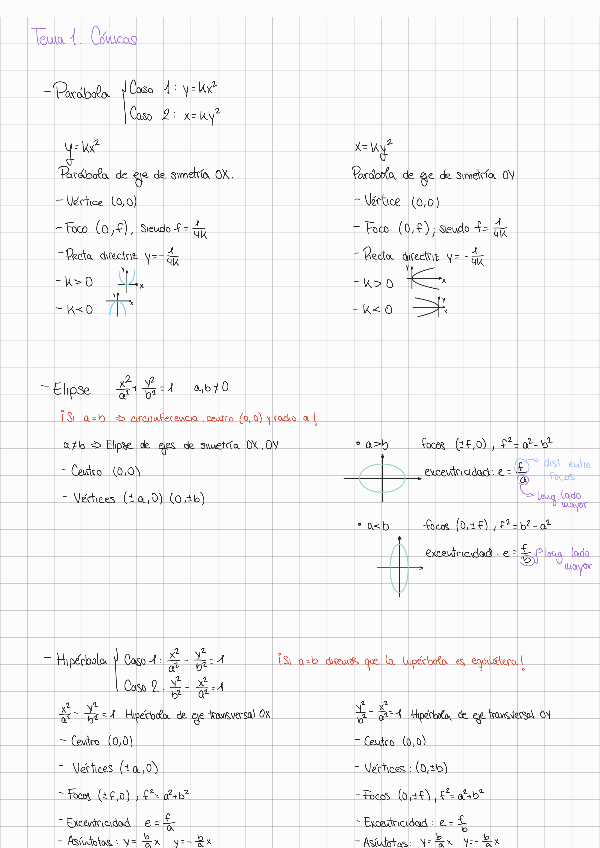 Tema 1. Cónicas
- Parábola { Caso 1: y=kx²
Caso 2: x=ky²
y=kx²
Parábola de eje de simetría OX.
- Vértice (0,0)
- Foco (0,f), siendo f=1/4k
- Recta directriz y=-1/4k
- k>0
y
x
- k<0
y
x
x=ky²
Parábola de eje de simetría OY
- Vértice (0,0)
- Foco (0,f), siendo f=1/4k
- Recta directriz y=-1/4k
- k>0
y
x
- k<0
y
x
- Elipse x²/a²+y²/b²=1 a,b≠0
¡Si a=b ⇒ circunferencia centro (0,0) y radio a!
a≠b ⇒ Elipse de ejes de simetría OX, OY
- Centro (0,0)
- Vértices (±a,0) (0,±b)
• a>b focos (±f,0), f²=a²-b²
excentricidad: e=f/a
→ dist. entre
focos
→ long. lado
mayor
• a<b focos (0,±f), f²=b²-a²
excentricidad: e=f/b
long. lado
mayor
- Hipérbola { Caso 1: x²/a²-y²/b²=1
Caso 2: y²/b²-x²/a²=1
¡Si a=b diremos que la hipérbola es equilátera!
x²/a²-y²/b²=1 Hipérbola de eje transversal OX
- Centro (0,0)
- Vértices (±a,0)
- Focos (±f,0), f²=a²+b²
- Excentricidad e=f/a
- Asíntotas: y=b/a x y=-b/a x
y²/b²-x²/a²=1 Hipérbola de eje transversal OY
- Centro (0,0)
- Vértices: (0,±b)
- Focos (0,±f), f²=a²+b²
- Excentricidad: e=f/b
- Asíntotas: y=b/a x y=-b/a x